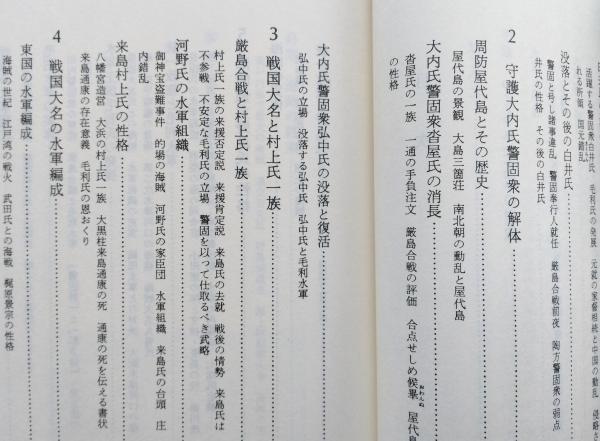 活躍する警固衆白井氏 毛利氏の発展 元就の家督相続と中国の動乱 侵略さ
れる所領 国元錯乱
没落とその後の白井氏
警固と号し諸事違乱 警固奉行人就任 厳島合戦前夜 陶方警固衆の弱点
井氏の性格 その後の白井氏
2 守護大内氏警固衆の解体
周防屋代島とその歴史
屋代島の景観 大島三箇荘 南北朝の動乱と屋代島
大内氏警固衆沓屋氏の消長
沓屋氏の一族 一通の手負注文 厳島合戦の評価 合点せしめ候畢 屋代島
おわんぬ
の性格
大内氏警固衆弘中氏の没落と復活
弘中氏の立場 没落する弘中氏 弘中氏と毛利水軍
3 戦国大名と村上氏一族
厳島合戦と村上氏一族
村上氏一族の来援否定説 来援肯定説 来島氏の去就 戦後の情勢 来島氏は
不参戦 不安定な毛利氏の立場 警固を以って仕取るべき武略
河野氏の水軍組織
御神宝盗難事件 的場の海賊 河野氏の家臣団 水軍組織 来島氏の台頭 庄
内錯乱
来島村上氏の性格
八幡宮造営 大浜の村上氏一族 大黒柱来島通康の死 通康の死を伝える書状
来島通康の存在意義 毛利氏の恩おくり
4 戦国大名の水軍編成
東国の水軍編成
海賊の世紀 江戸湾の戦火 武田氏との海戦 梶原景宗の性格